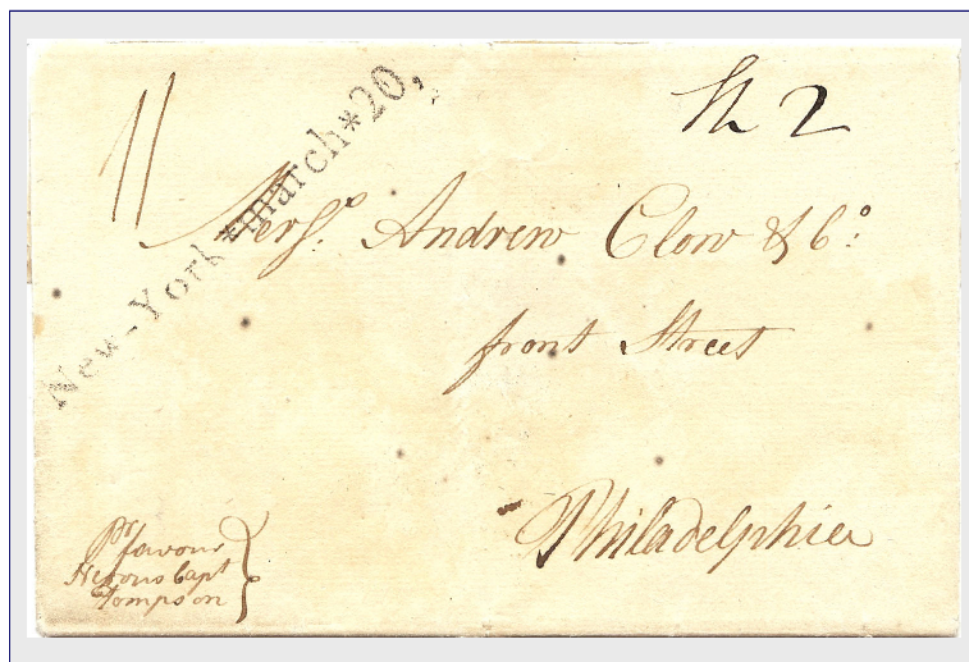 Sh 2
New-York *march*20,
Messrs. Andrew Clow & Co.
front Street
Philadelphia
Pr favour
Capt
Tompson